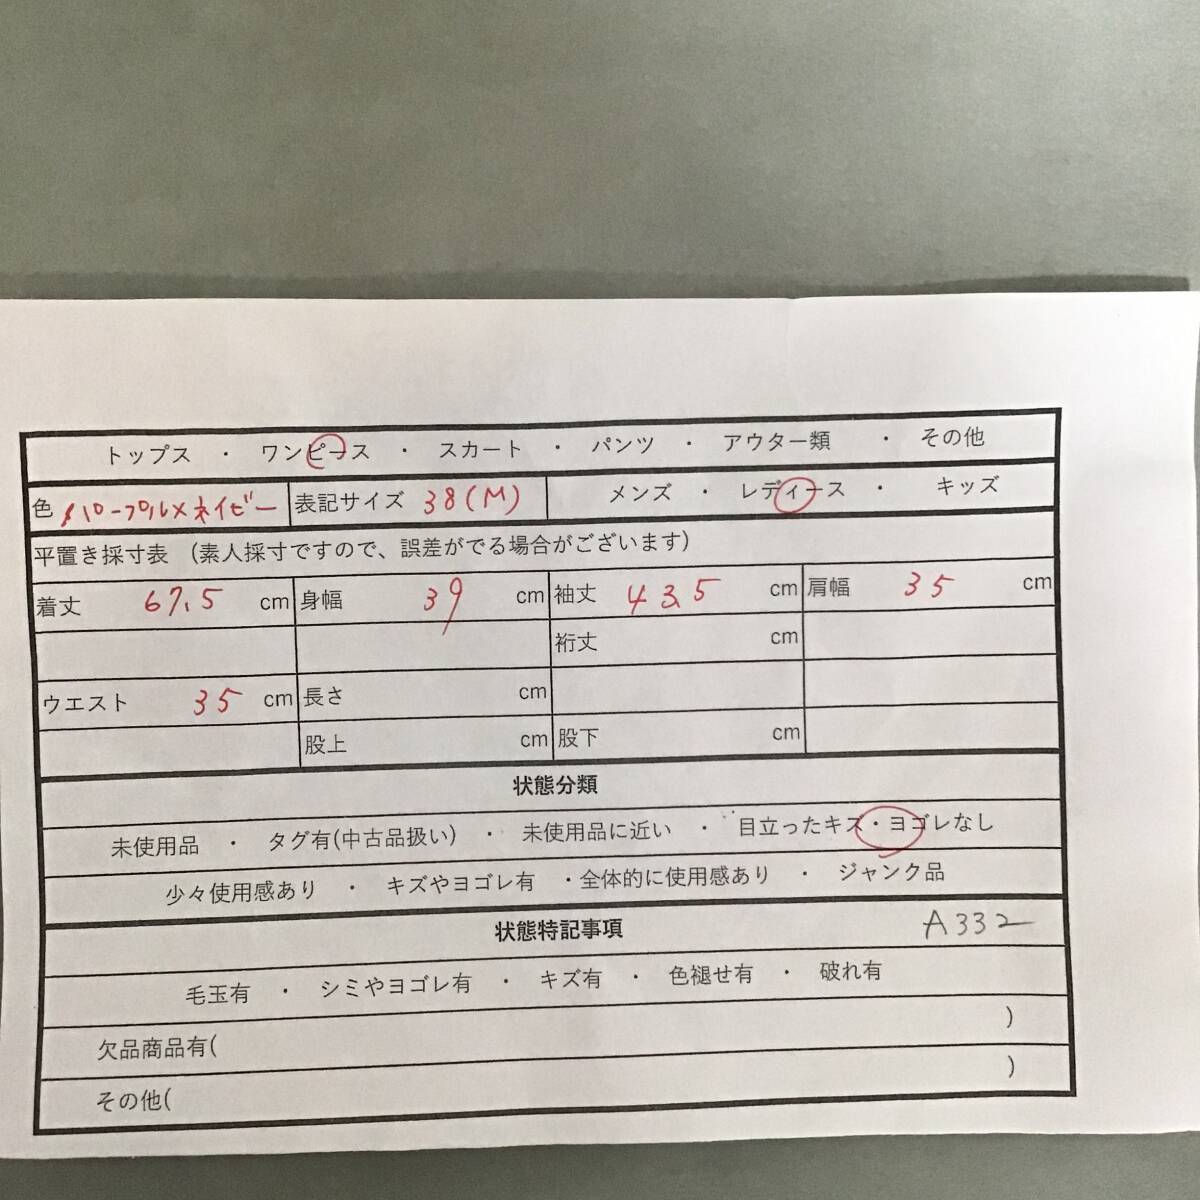 トップス ・ ワンピース ・ スカート ・ パンツ ・ アウター類 ・ その他
色 パープル×ネイビー 表記サイズ 38(M) メンズ ・ レディース ・ キッズ
平置き採寸表 （素人採寸ですので、誤差がでる場合がございます）
着丈 67.5 cm 身幅 39 cm 袖丈 43.5 cm 肩幅 35 cm
裄丈 cm
ウエスト 35 cm 長さ cm
股上 cm 股下 cm
状態分類
未使用品 ・ タグ有(中古品扱い) ・ 未使用品に近い ・ 目立ったキズ・ヨゴレなし
少々使用感あり ・ キズやヨゴレ有 ・全体的に使用感あり ・ ジャンク品
状態特記事項 A332
毛玉有 ・ シミやヨゴレ有 ・ キズ有 ・ 色褪せ有 ・ 破れ有
欠品商品有( )
その他( )